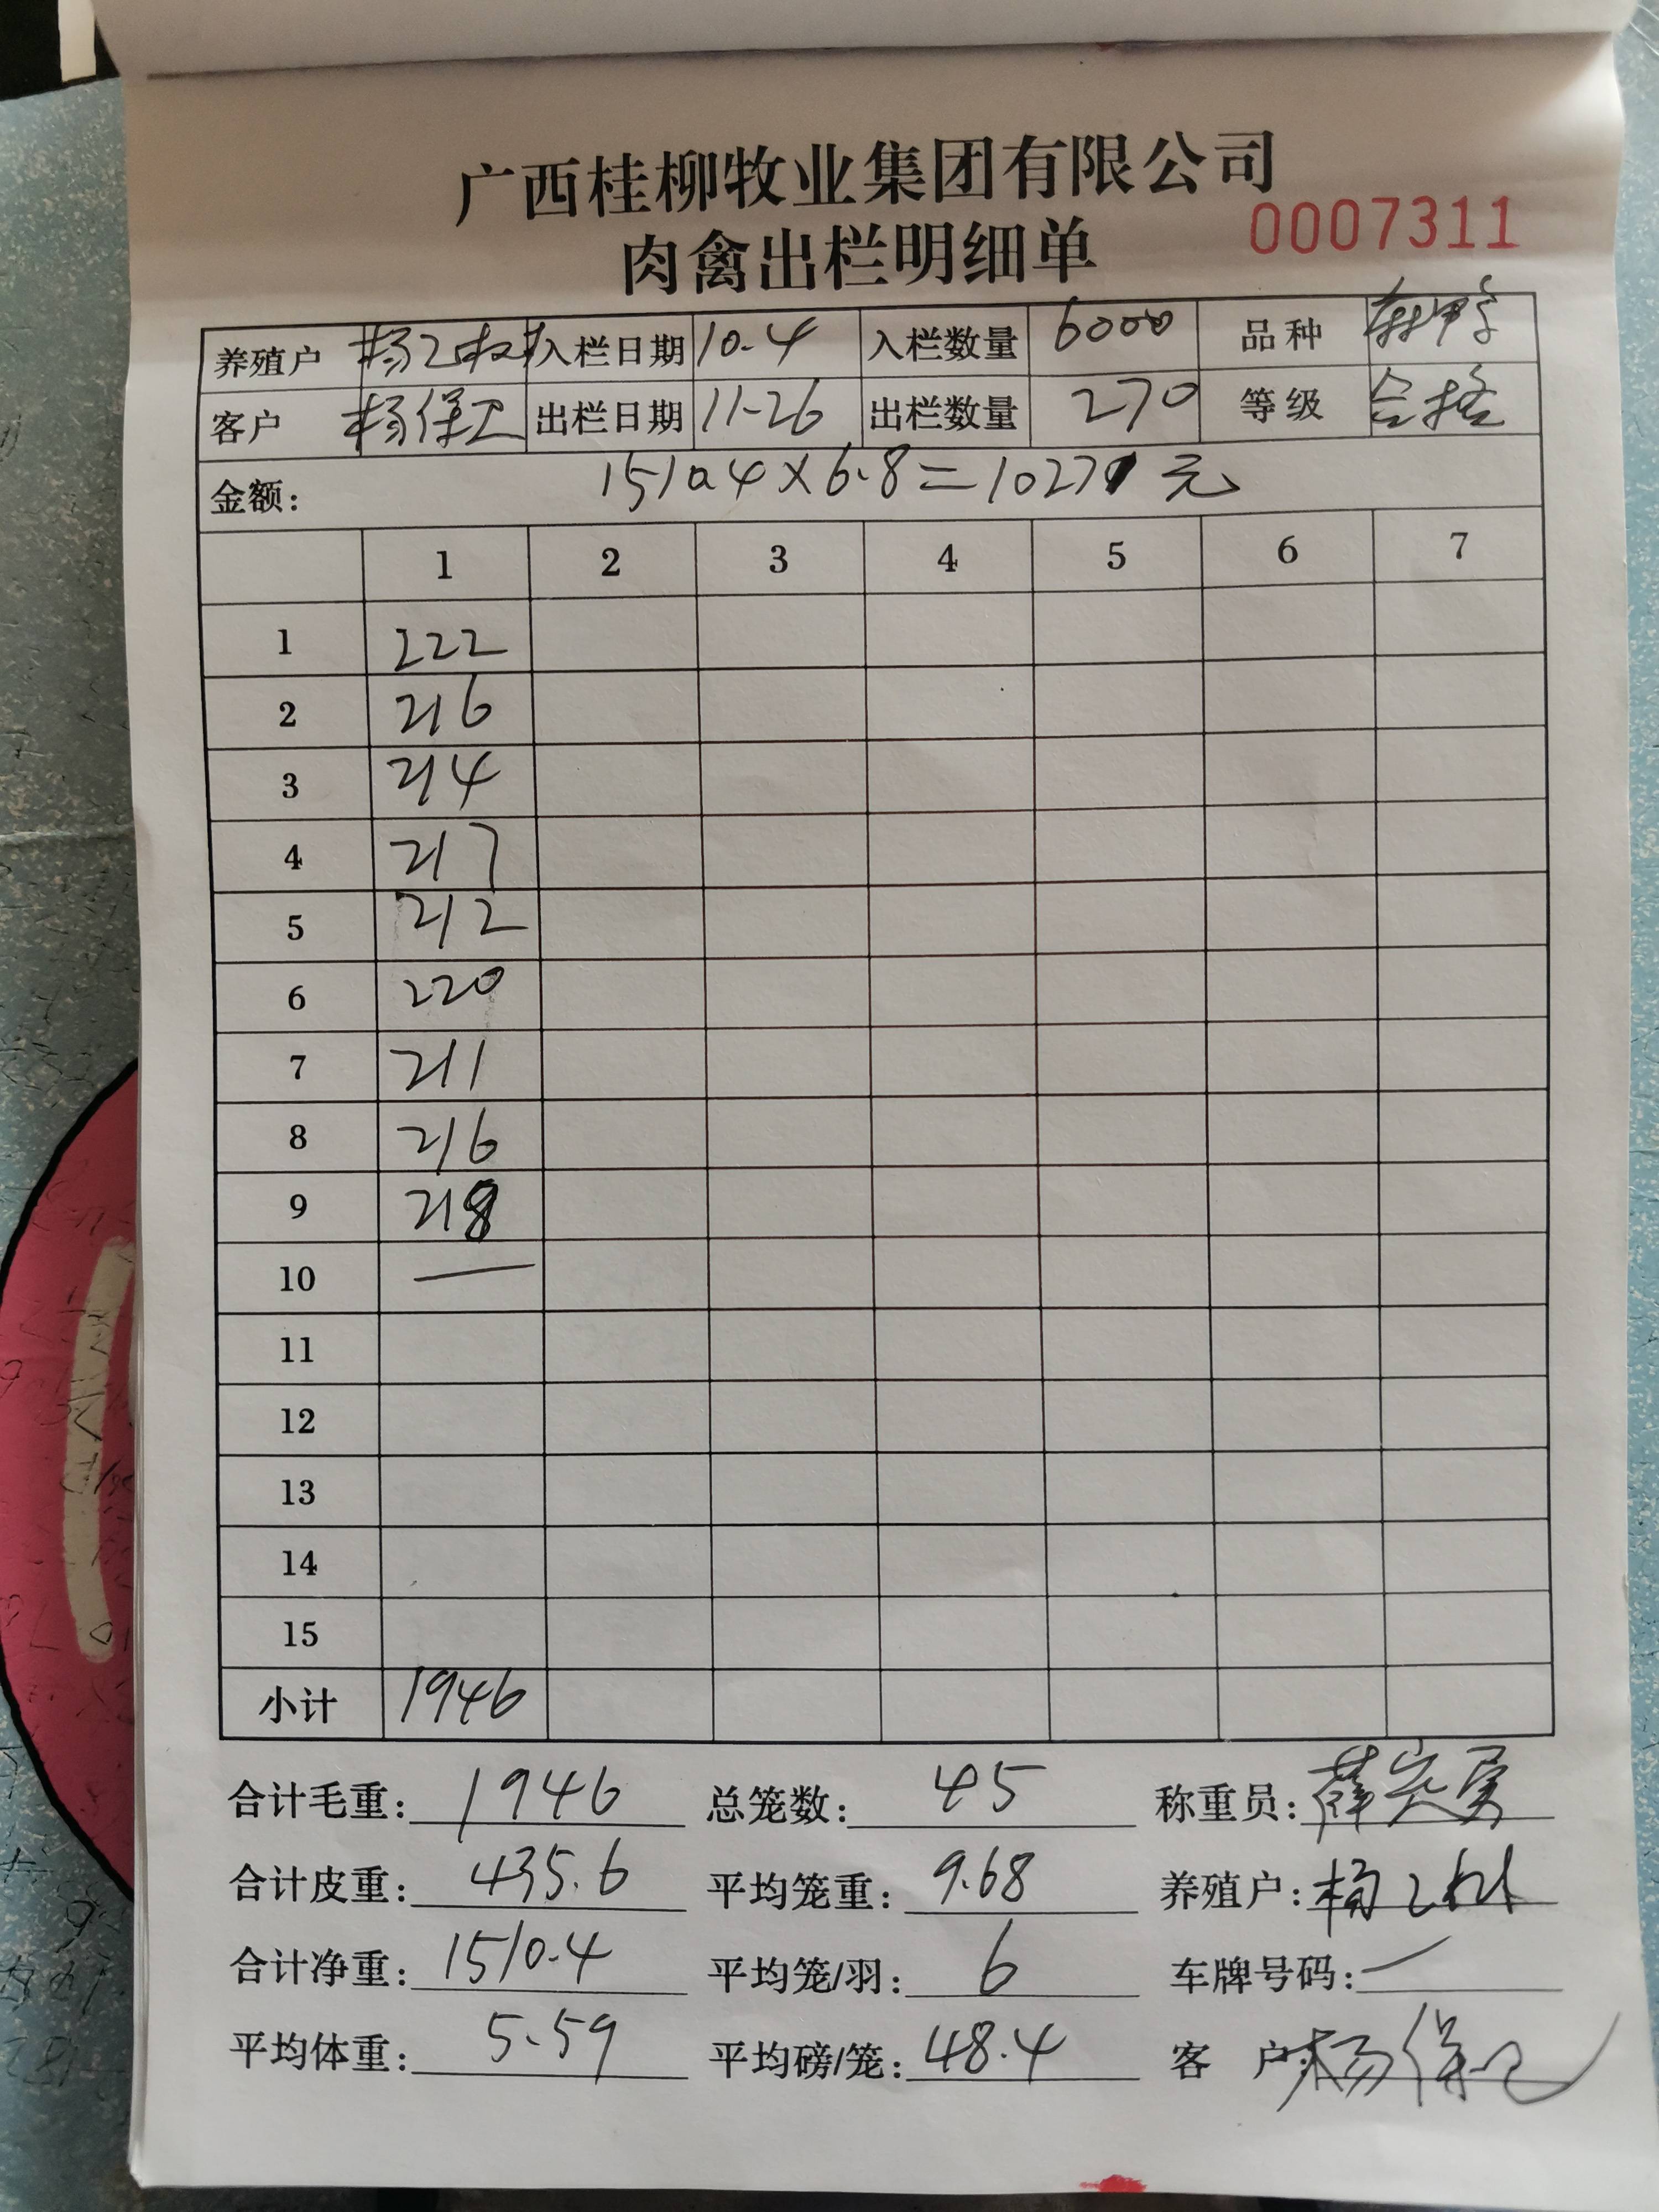 广西桂柳牧业集团有限公司
肉禽出栏明细单 0007311
养殖户 杨 入栏日期 10.4 入栏数量 6000 品种
客户 杨保 出栏日期 11-26 出栏数量 270 等级 合格
金额: 1510.4×6.8=10271元
1 2 3 4 5 6 7
1 222
2 216
3 214
4 217
5 212
6 220
7 211
8 216
9 218
10 —
11
12
13
14
15
小计 1946
合计毛重: 1946 总笼数: 45 称重员: 薛
合计皮重: 435.6 平均笼重: 9.68 养殖户: 杨
合计净重: 1510.4 平均笼/羽: 6 车牌号码: —
平均体重: 5.59 平均磅/笼: 48.4 客户: 杨保